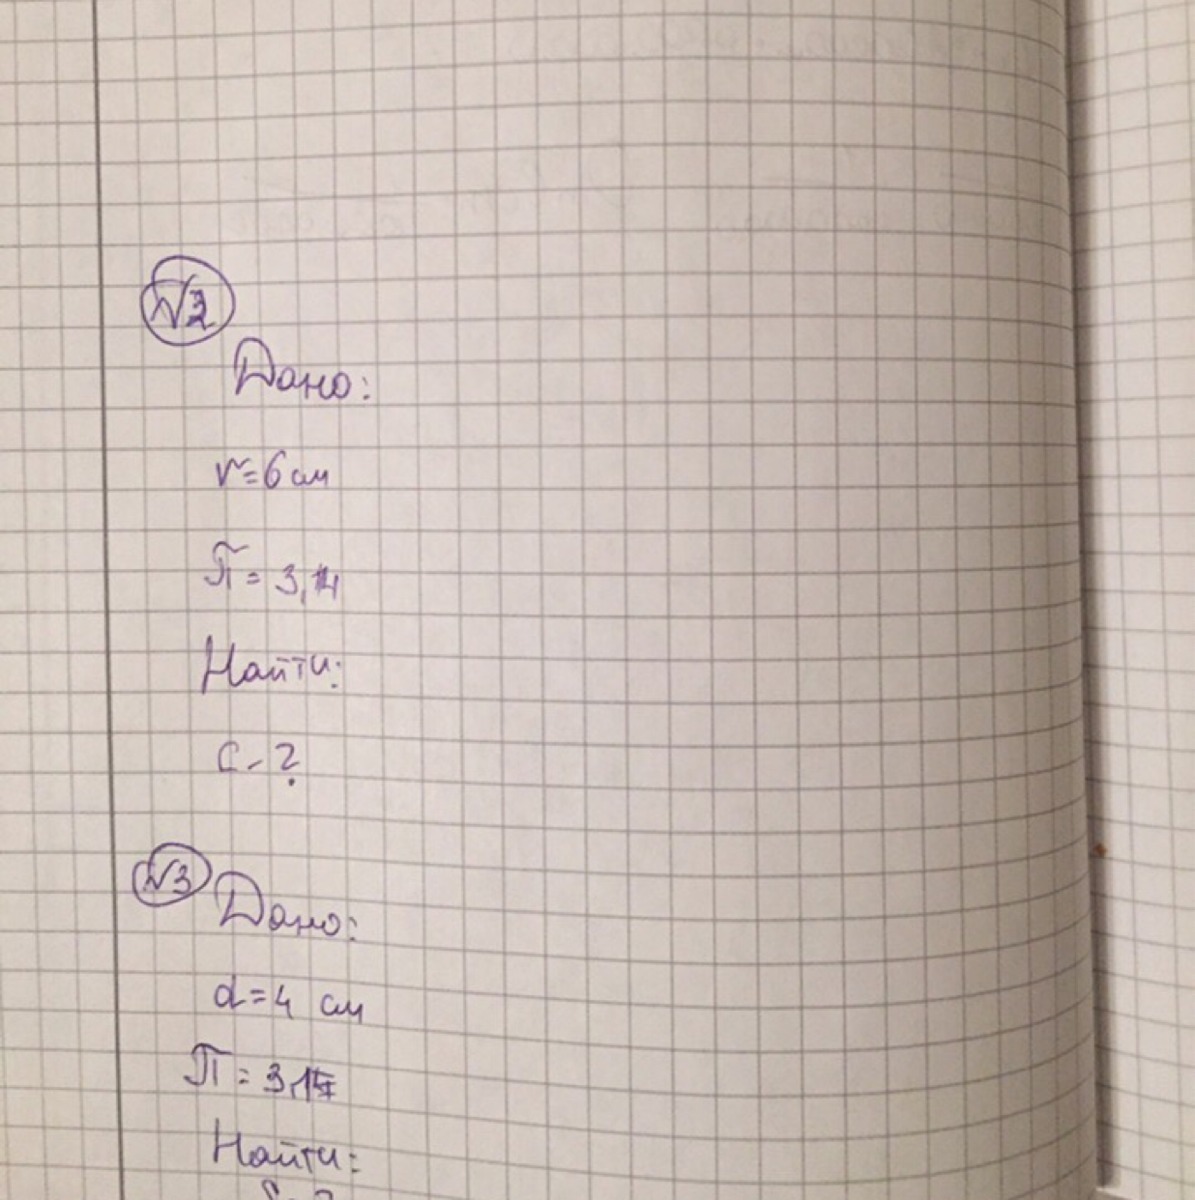 №2
Дано:
r=6 см
П = 3,14
Найти:
C - ?
№3
Дано:
d=4 см
П = 3,14
Найти: